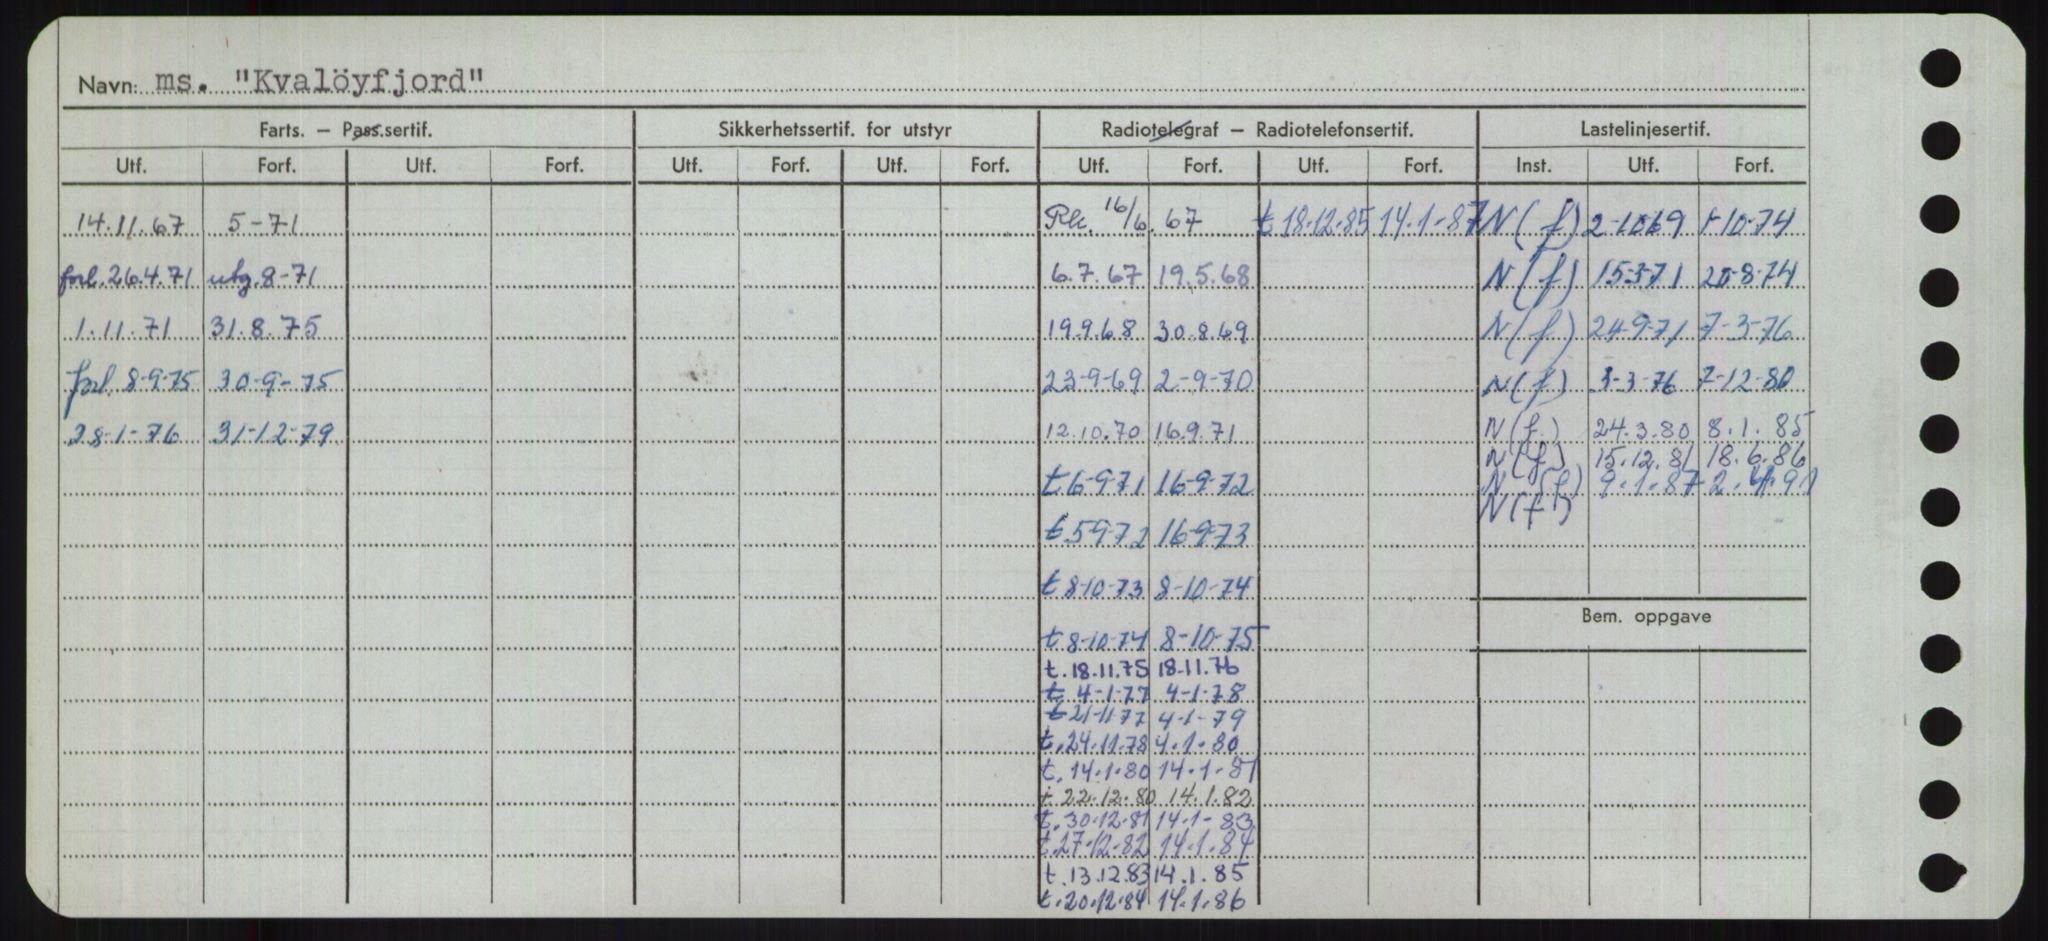 Navn: ms. "Kvalöyfjord"
Farts. – Pass.sertif. Sikkerhetssertif. for utstyr Radiotelegraf – Radiotelefonsertif. Lastelinjesertif.
Utf. Forf. Utf. Forf. Utf. Forf. Utf. Forf. Utf. Forf. Utf. Forf. Inst. Utf. Forf.
14.11.67 5-71 16/6.67 t 18.12.85 14.1-87 N(f) 2-10 69 1-10-74
forl. 26.4.71 utg. 8-71 6.7.67 19.5.68 N(f) 15-3-71 20-8-74
1.11.71 31.8.75 19.9.68 30.8.69 N(f) 24-9-71 7-3-76
forl. 8-9-75 30-9-75 23-9-69 2-9-70 N(f) 3-3-76 7-12-80
28-1-76 31-12-79 12.10.70 16.9.71 N(f.) 24.3.80 8.1.85
N(f) 15.12.81 18.6.86
t 6-9-71 16-9-72 N(f) 9.1.87 2.4.91
N(f)
t 5-9-72 16-9-73
t 8-10-73 8-10-74
Bem. oppgave
t 8-10-74 8-10-75
t. 18.11.75 18.11.76
t 4-1-77 4-1-78
t 21-11-77 4-1-79
t. 24.11.78 4.1.80
t. 14.1.80 14.1-81
t 22.12.80 14.1.82
t. 30.12.81 14.1-83
t. 27-12-82 14.1.84
t. 13.12.83 14.1.85
t. 20.12.84 14.1.86